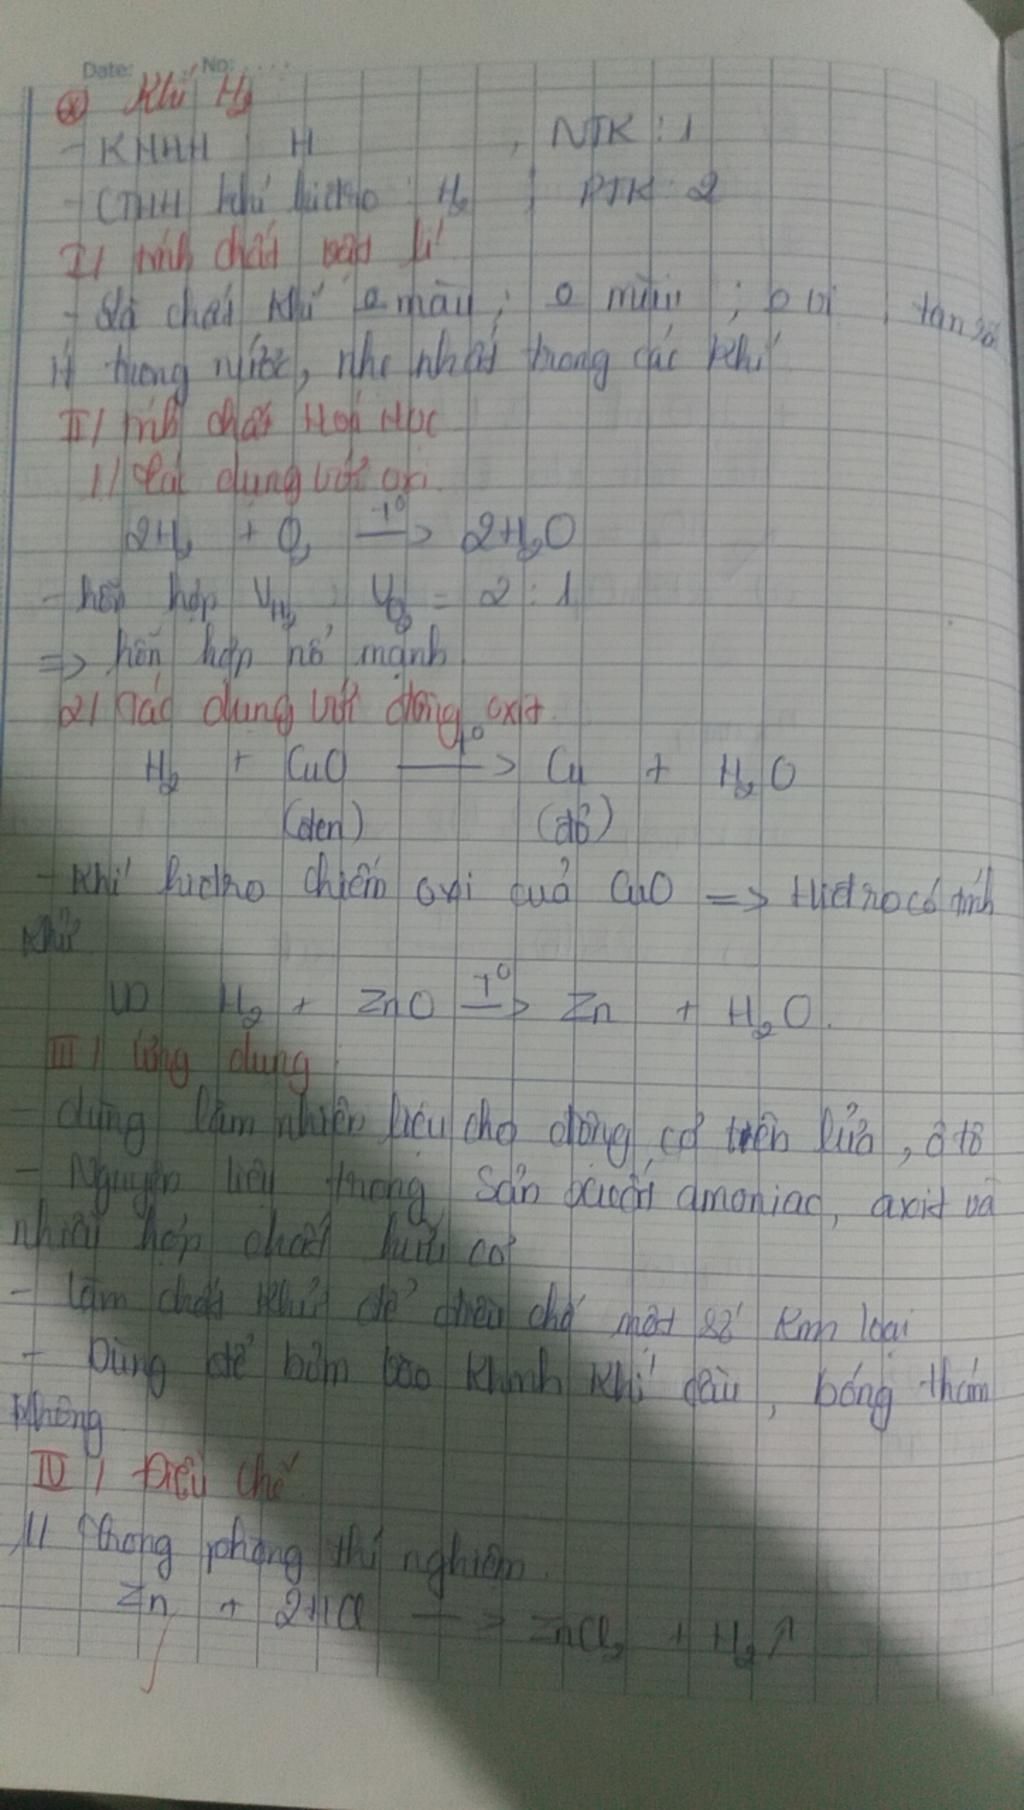 Date: No:
Khí H₂
- KHHH : H , NTK : 1
- CTHH khí hidro : H₂ ; PTK : 2
I/ tính chất vật lí
- Là chất khí o màu ; o mùi ; o vị ; tan rất
ít trong nước, nhẹ nhất trong các khí
II/ tính chất Hoá Học
1/ tác dụng với oxi
2H₂ + O₂ -t⁰-> 2H₂O
- hỗn hợp V H₂ : V O₂ = 2 : 1
=> hỗn hợp nổ mạnh
2/ tác dụng với đồng oxit
H₂ + CuO -t⁰-> Cu + H₂O
(đen) (đỏ)
- Khí hidro chiếm oxi của CuO => Hidro có tính
khử
VD H₂ + ZnO -T⁰-> Zn + H₂O.
III/ ứng dụng
- dùng làm nhiên liệu cho động cơ tên lửa, ô tô
- Nguyên liệu trong sản xuất amoniac, axit và
nhiều hợp chất hữu cơ
- làm chất khử để điều chế một số kim loại
- Dùng để bơm vào khinh khí cầu, bóng thám
không
IV/ Điều chế
1/ trong phòng thí nghiệm
Zn + 2HCl -> ZnCl₂ + H₂↑